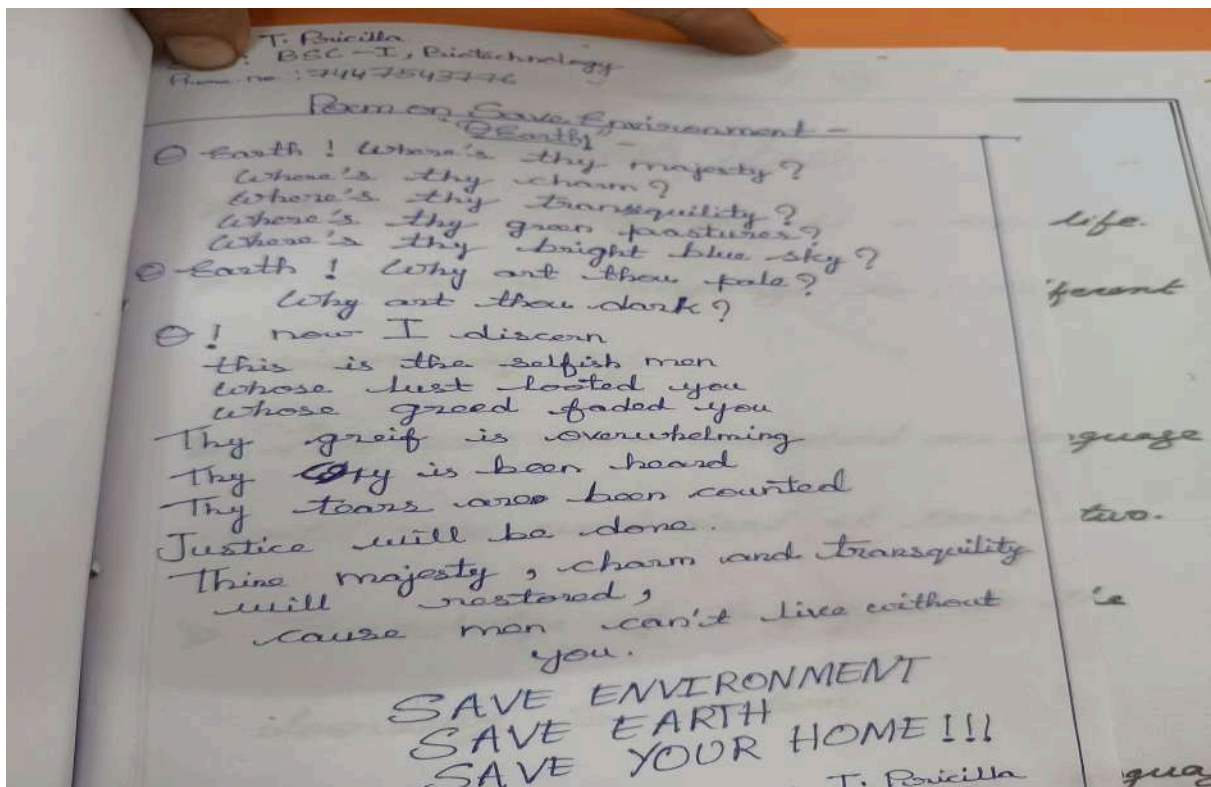 T. Pricilla
BSC-I, Biotechnology
Phone no : 7447543776
Poem on Save Environment -
"O Earth" -
O Earth ! Where's thy majesty?
Where's thy charm?
Where's thy transquility?
Where's thy green pastures?
Where's thy bright blue sky?
O Earth ! Why art thou pale?
Why art thou dark?
O ! now I discern
this is the selfish men
whose lust looted you
whose greed faded you
Thy greif is overwhelming
Thy cry is been heard
Thy tears are been counted
Justice will be done.
Thine majesty, charm and transquility
will restored,
cause men can't live without
you.
SAVE ENVIRONMENT
SAVE EARTH
SAVE YOUR HOME!!!
T. Pricilla
life.
ferent
guage
two.
is